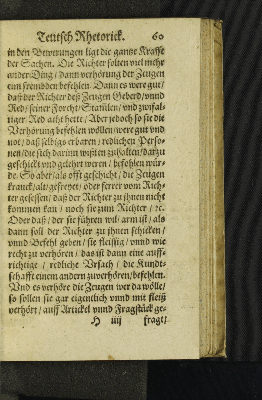 Teutsch Rhetorick. 60
in den Bewerungen ligt die gantze Krafft
der Sachen. Die Richter solten viel mehr
ander Ding / dann verhörung der Zeugen
ein frembden befehlen. Dann es were gut /
daß der Richter deß Zeugen Geberd / vnnd
Red / seiner Forcht / Stamlen / vnd zwifal-
tiger Red acht hette / Aber jedoch so sie die
Verhörung befehlen wöllen / were gut vnd
not / daß selbigs erbaren / redlichen Perso-
nen / die sich darinn wysten zuhalten / darzu
geschickt vnd gelehrt weren / befehlen wür-
de. So aber / als offt geschicht / die Zeugen
kranck / alt / gefreyet / oder ferrer vom Rich-
ter gesessen / daß der Richter zu jhnen nicht
kommen kan / noch sie zum Richter / ꝛc.
Oder daß / der sie führen wil / arm ist / als
dann soll der Richter zu jhnen schicken /
vnnd Befehl geben / sie fleissig / vnnd wie
recht zu verhören / das ist dann eine auff-
richtige / redliche Vrsach / die Kundt-
schafft einem andern zuverhören / befehlen.
Vnd es verhöre die Zeugen wer da wölle /
so sollen sie gar eigentlich vnnd mit fleiß
verhört / auff Artickel vnnd Fragstück ge-
H iiij fragt /